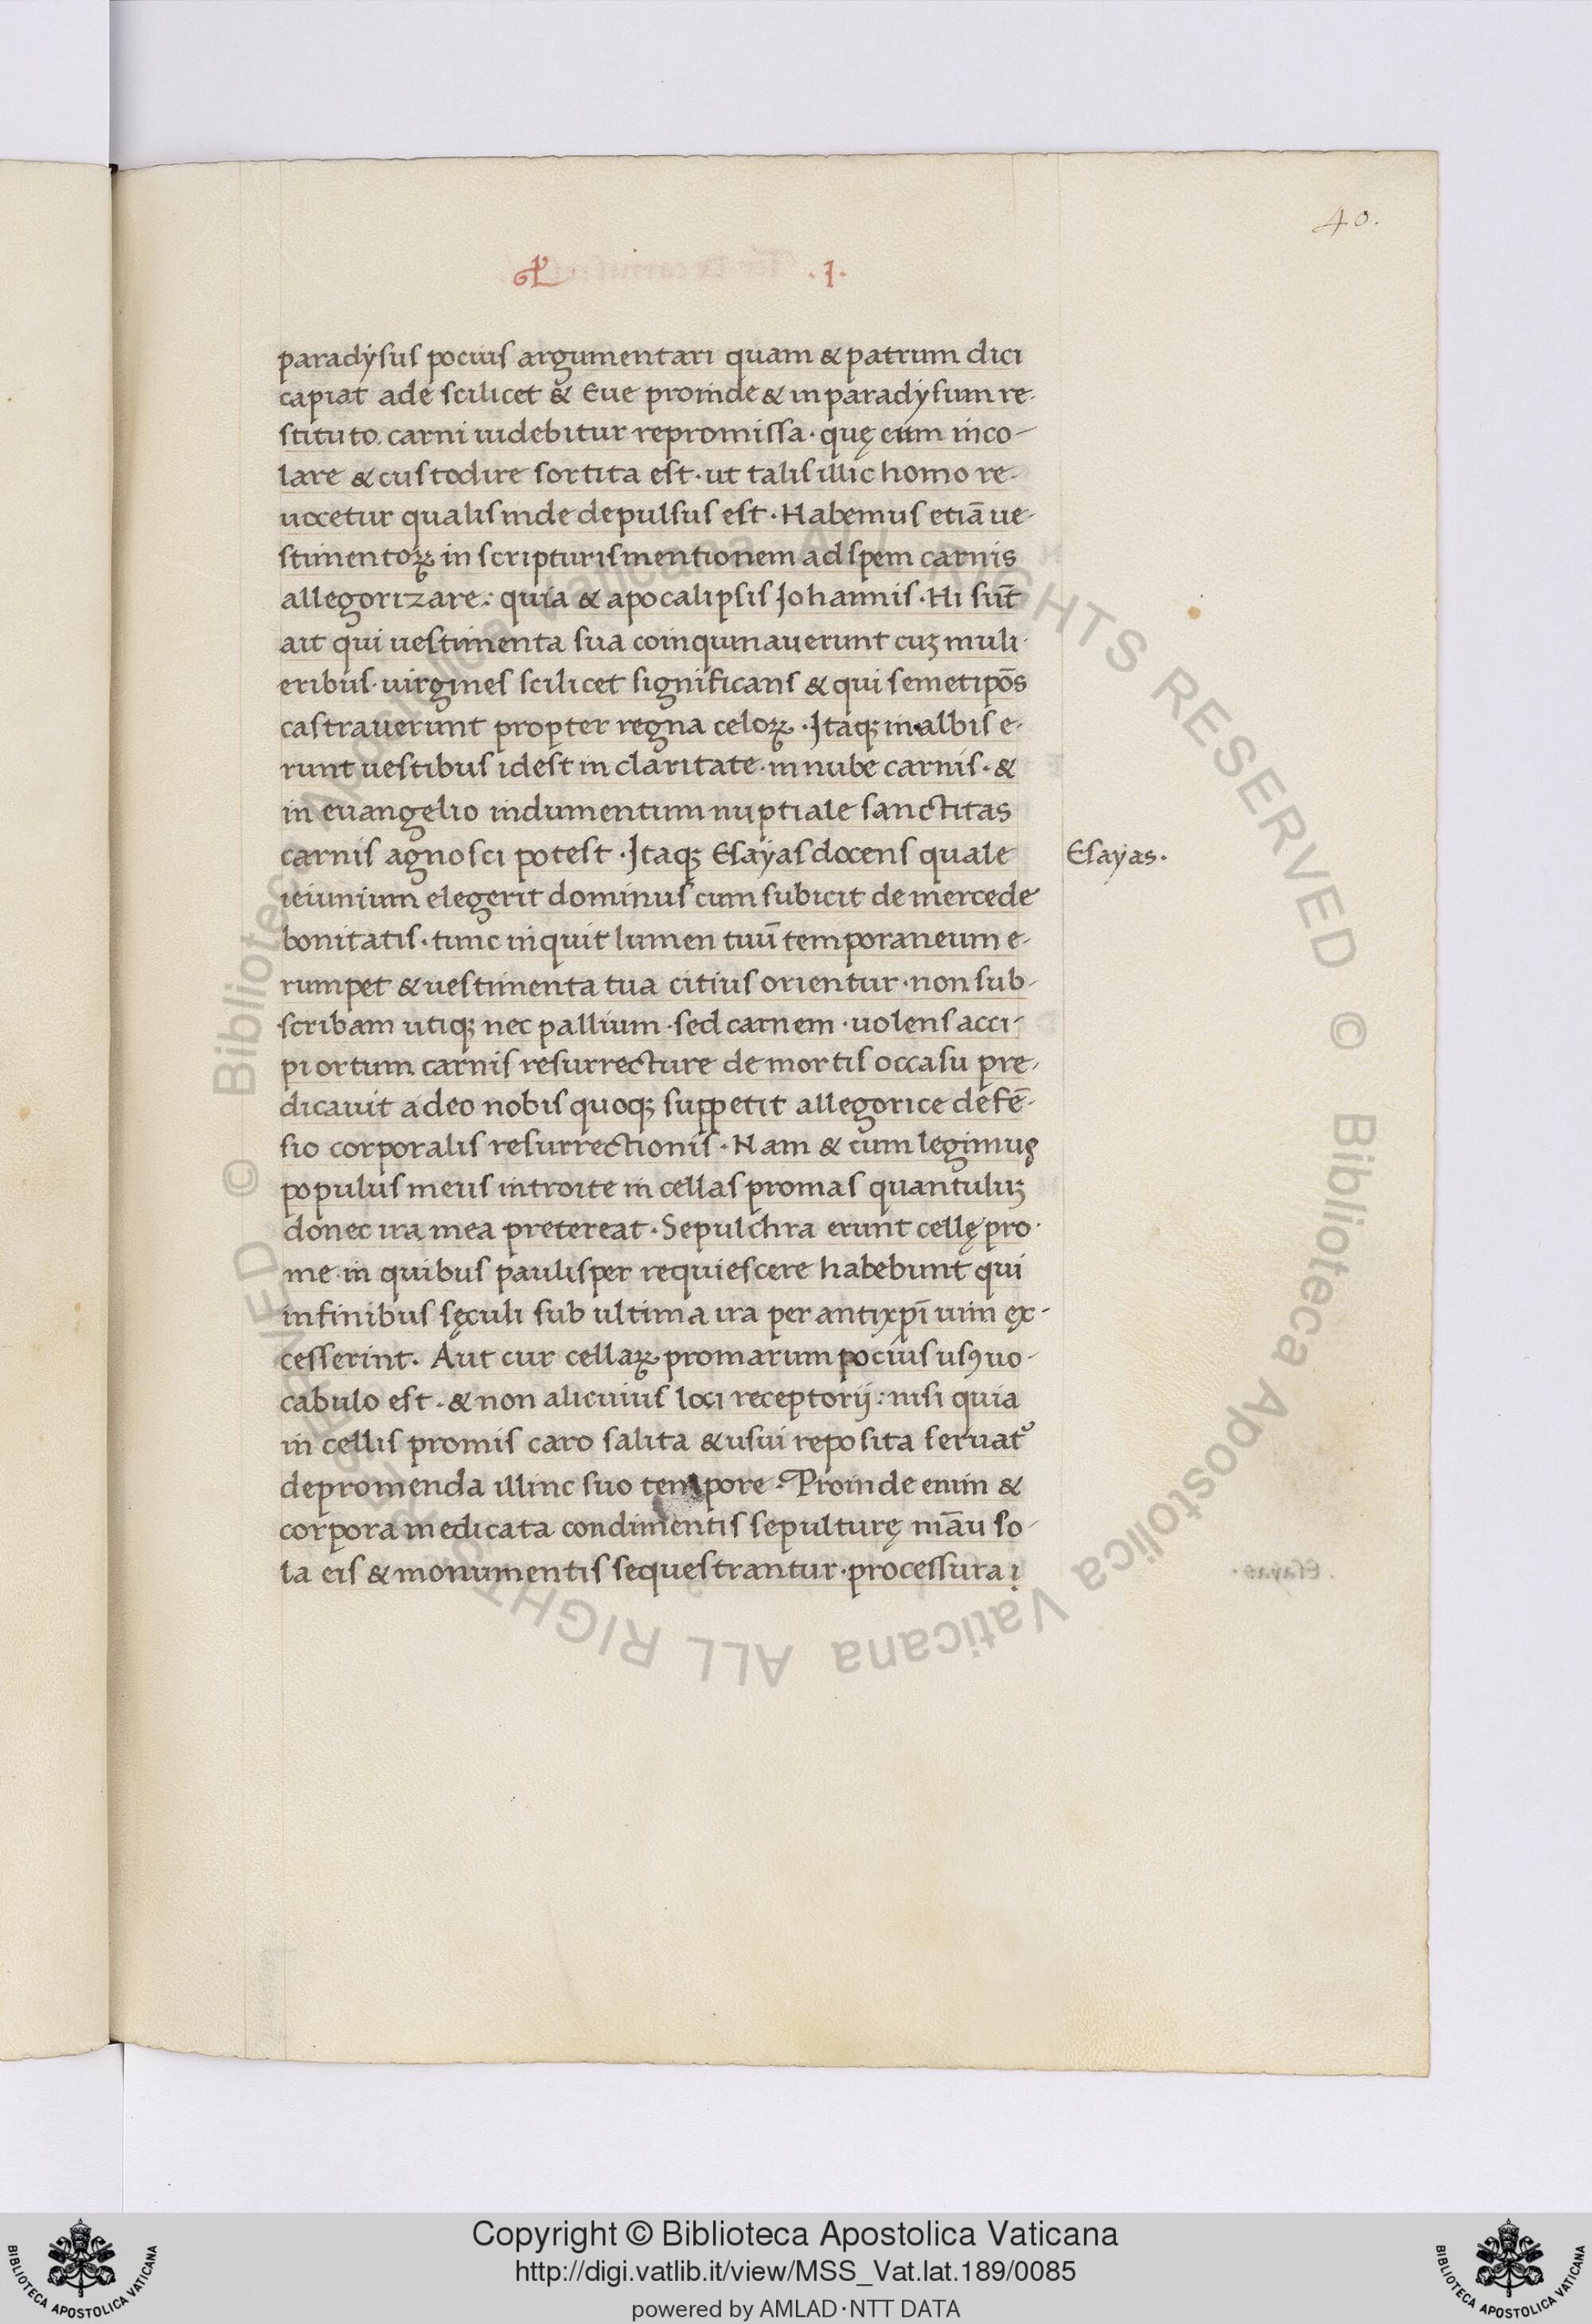 40.
.I.
paradysus pocius argumentari quam & patrum dici
capiat ade scilicet & Eue proinde & in paradysum re-
stituto. carni uidebitur repromissa · quę eum inco-
lare & custodire sortita est · ut talis illic homo re-
uocetur qualis inde depulsus est · Habemus etiā ue-
stimentoꝝ in scripturis mentionem ad spem carnis
allegorizare: quia & apocalipsis Johannis · Hi sūt
ait qui uestimenta sua coinquinauerunt cuꝫ muli-
eribus · uirgines scilicet significans & qui semetipōs
castrauerunt propter regna celoꝝ · Itaqꝫ in albis e-
runt uestibus idest in claritate · in nube carnis · &
in euangelio indumentum nuptiale sanctitas
carnis agnosci potest · Itaqꝫ Esayas docens quale
Esayas.
ieiunium elegerit dominus cum subicit de mercede
bonitatis · tunc inquit lumen tuū temporaneum e-
rumpet & uestimenta tua citius orientur · non sub-
scribam utiqꝫ nec pallium · sed carnem · uolens acci-
pi ortum carnis resurrecture de mortis occasu pre-
dicauit adeo nobis quoqꝫ suppetit allegorice defē-
sio corporalis resurrectionis · Nam & cum legimus
populus meus introite in cellas promas quantuluꝫ
donec ira mea pretereat · Sepulchra erunt cellę pro-
me · in quibus paulisper requiescere habebunt qui
in finibus sęculi sub ultima ira per antixp̄i uim ęx-
cesserint. Aut cur cellaꝝ promarum pocius usꝰ uo-
cabulo est · & non alicuius loci receptorij: nisi quia
in cellis promis caro salita & usui reposita seruat᷑
depromenda illinc suo tempore · Proinde enim &
corpora medicata condimentis sepulturę māu so-
la eis & monumentis sequestrantur · processura i
Copyright © Biblioteca Apostolica Vaticana
http://digi.vatlib.it/view/MSS_Vat.lat.189/0085
powered by AMLAD·NTT DATA
BIBLIOTECA APOSTOLICA VATICANA
BIBLIOTECA APOSTOLICA VATICANA
© Biblioteca Apostolica Vaticana ALL RIGHTS RESERVED © Biblioteca Apostolica Vaticana ALL RIGHTS RESERVED